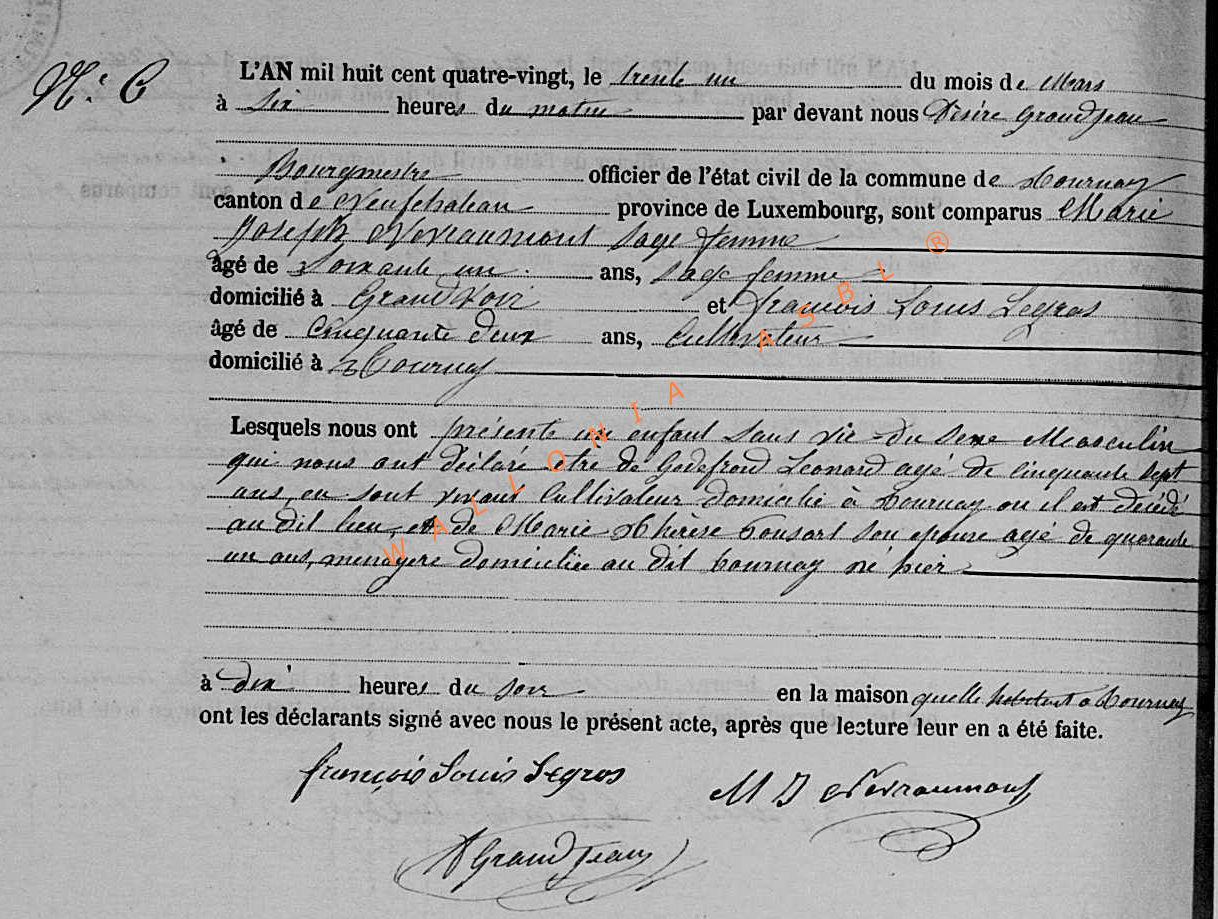 N: 6
L'AN mil huit cent quatre-vingt, le trente un du mois de Mars
à Six heures du matin par devant nous Désiré Grandjean
Bourgmestre officier de l'état civil de la commune de Tournay
canton de Neufchateau province de Luxembourg, sont comparus Marie
Joseph Nevraumont Sage femme
âgé de Soixante un ans, Sage femme
domicilié à Grandvoir et francois Louis Legros
âgé de Cinquante deux ans, Cultivateur
domicilié à Tournay
Lesquels nous ont présenté un enfant Sans vie du Sexe Masculin
qui nous ont déclaré etre de Godefroid Leonard agé de cinquante sept
ans, en sont vivant Cultivateur domicilié à Tournay ou il est décédé
au dit lieu, et de Marie Thérèse tousart Son epouse agé de quarante
un ans, menagere domiciliée au dit tournay né hier
à dix heures du soir en la maison quelle habitent à Tournay
ont les déclarants signé avec nous le présent acte, après que lecture leur en a été faite.
françois Louis Legros
M J Nevraumont
D Grandjean
WALLONIA ASBL ®